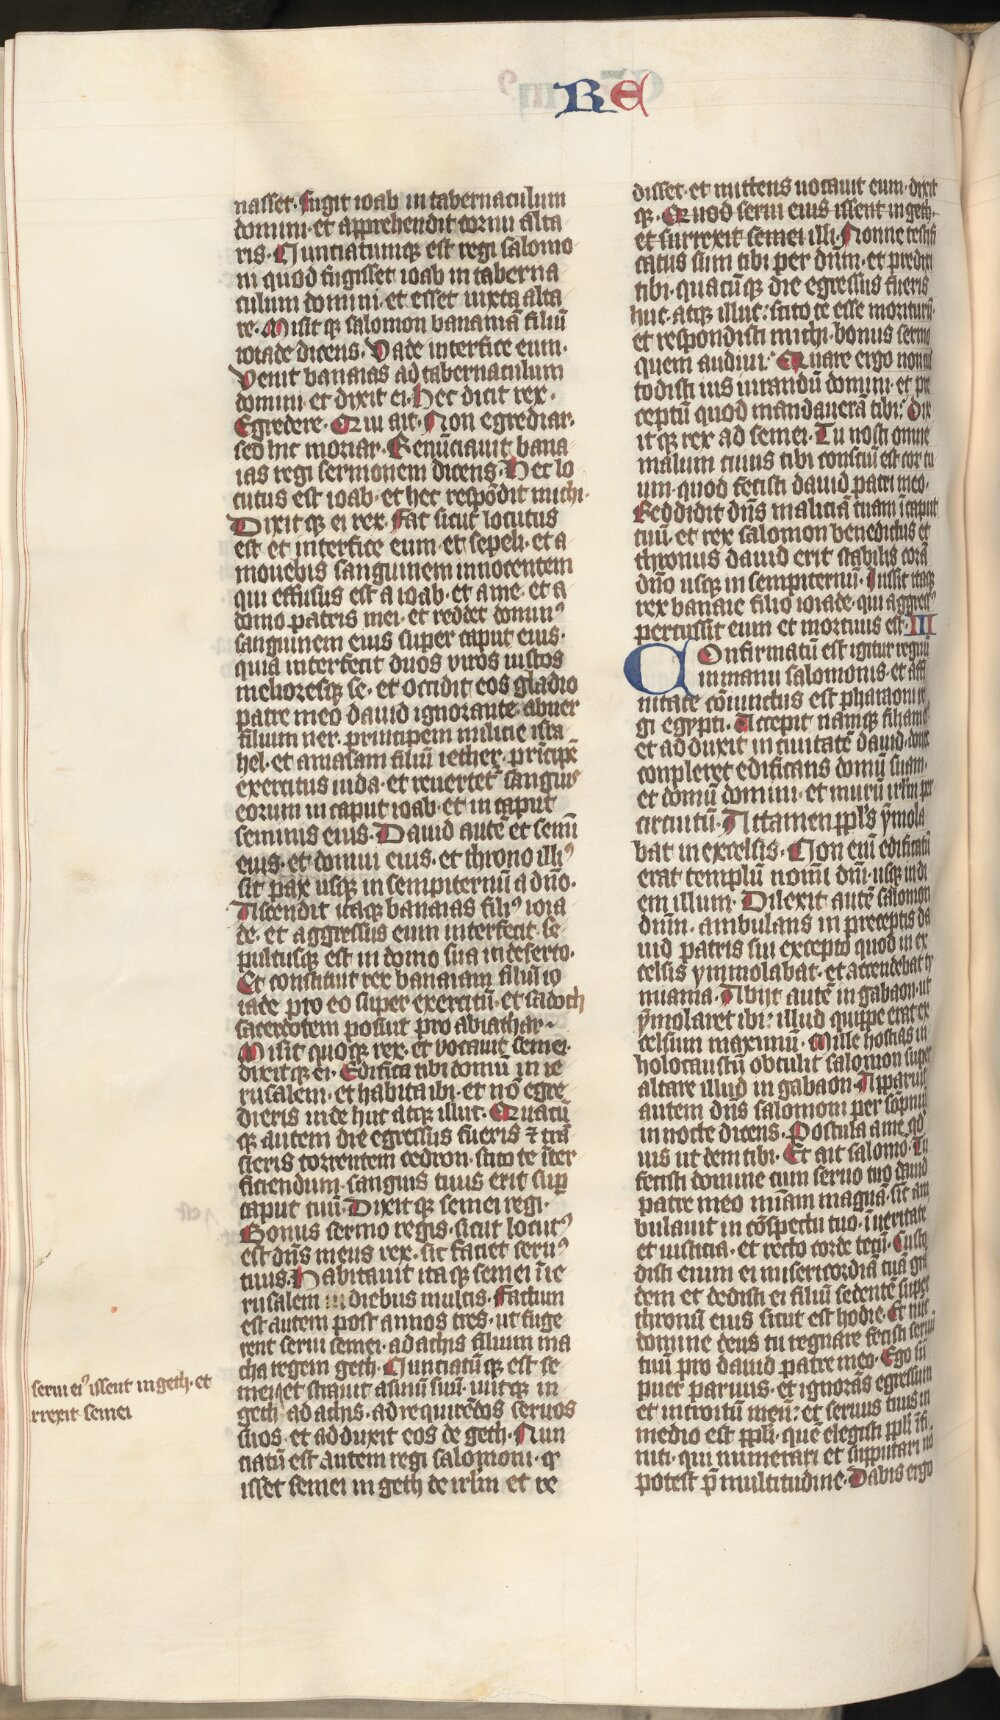 RE
nasset. fugit ioab in tabernaculum
domini. et apprehendit cornu alta
ris. Nunciatumqꝫ est regi salomo
ni quod fugisset ioab in taberna
culum domini. et esset iuxta alta
re. Misit qꝫ salomon banaiā filiū
ioiade dicens. Vade interfice eum.
Venit banaias ad tabernaculum
domini et dixit ei. Hec dicit rex.
Egredere. Qui ait. Non egrediar.
sed hic moriar. Renūciauit bana
ias regi sermonem dicens. Hec lo
cutus est ioab. et hec respōdit michi.
Dixit qꝫ ei rex. Fac sicut locutus
est et interfice eum. et sepeli. et a
mouebis sanguinem innocentem
qui effusus est a ioab. et a me. et a
domo patris mei. et reddet dominꝰ
sanguinem eius super caput eius.
quia interfecit duos viros iustos
melioresqꝫ se. et occidit eos gladio
patre meo dauid ignorante. abner
filium ner. principem milicie isra
hel. et amasam filiū iether. prīcipē
exercitus iuda. et reuertet᷑ sanguis
eorum in caput ioab. et in caput
seminis eius. Dauid autē et semī
eius. et domui eius. et throno illiꝰ
sit pax usqꝫ in sempiternū a dn̄o.
Ascendit itaqꝫ banaias filiꝰ ioia
de. et aggressus eum interfecit. se
pultusqꝫ est in domo sua in deserto.
Et constituit rex banaiam filiū io
iade pro eo super exercitū. et sadoch
sacerdotem posuit pro abiathar.
Misit quoqꝫ rex. et vocauit semei.
dixitqꝫ ei. Edifica tibi domū in ie
rusalem. et habita ibi. et nō egre
dieris inde huc atqꝫ illuc. Quacū
qꝫ autem die egressus fueris ⁊ trā
sieris torrentem cedron. scito te īter
ficiendum. sanguis tuus erit sup
caput tuū. Dixit qꝫ semei regi.
Bonus sermo regis. sicut locutꝰ
est dn̄s meus rex. sic faciet seruꝰ
tuus. Habitauit itaqꝫ semei ī ie
rusalem in diebus multis. Factum
est autem post annos tres. ut fuge
rent serui semei. ad achis filium ma
cha regem geth. Nunciatū qꝫ est se
mei et strauit asinū suū. iuitqꝫ in
geth ad achis. ad requirēdos seruos
suos. et adduxit eos de geth. Nun
ciatū est autem regi salomoni. qꝫ
isset semei in geth de irl̄m et re
serui eiꝰ issent in geth. et
rrexit semei
disset. et mittens uocauit eum. dixit
qꝫ. Quod serui eius issent in geth.
et surrexit semei illi. Nonne testifi
catus sum tibi per dn̄m. et predixi
tibi. quacūqꝫ die egressus fueris
huc. atqꝫ illuc: scito te esse moriturū.
et respondisti michi. bonus sermo
quem audiui. Quare ergo non cus
todisti ius iurandū domini. et pre
ceptū quod mandauerā tibi. Dix
it qꝫ rex ad semei. Tu nosti omne
malum cuius tibi consciū est cor tu
um. quod fecisti dauid patri meo.
Reddidit dn̄s maliciā tuam ī caput
tuū. et rex salomon benedictus et
thronus dauid erit stabilis corā
dn̄o usqꝫ in sempiternū. Iussit itaqꝫ
rex banaie filio ioiade. qui aggressꝰ
percussit eum et mortuus est. III
Confirmatū est igitur regnū
in manu salomonis. et affi
nitate cōiunctus est pharaoni re
gi egypti. Accepit namqꝫ filiam eiꝰ
et adduxit in ciuitatē dauid. donec
conpleret edificans domū suam.
et domū domini. et murū irl̄m per
circuitū. Attamen ppl̄s ymola
bat in excelsis. Non enī edificatū
erat templū nomī dn̄i. usqꝫ in di
em illum. Dilexit autē salomon
dn̄m. ambulans in preceptis da
uid patris sui excepto quod in ex
celsis ymmolabat. et accendebat ty
miama. Abijt autē in gabaon. ut
ymolaret ibi: illud quippe erat ex
celsum maximū. Mille hostias in
holocaustū obtulit salomon super
altare illud in gabaon. Apparuit
autem dn̄s salomoni per sōpniū
in nocte dicens. Postula a me qd̄
uis ut dem tibi. Et ait salomō. Tu
fecisti domine cum seruo tuo dauid
patre meo mīam magnā. sic am
bulauit in cōspectu tuo. ī ueritate
et iusticia. et recto corde tecū. Custo
disti enim ei misericordiā tuā gran
dem et dedisti ei filiū sedentē super
thronū eius sicut est hodie. Et nūc
domine deus tu regnare fecisti seruū
tuū pro dauid patre meo. Ego sū
puer paruus. et ignorās egressum
et introitū meū: et seruus tuus in
medio est ppl̄i. quē elegisti ppl̄i īfi
niti. qui numerari et supputari nō
potest p̄ multitudine. Dabis ergo